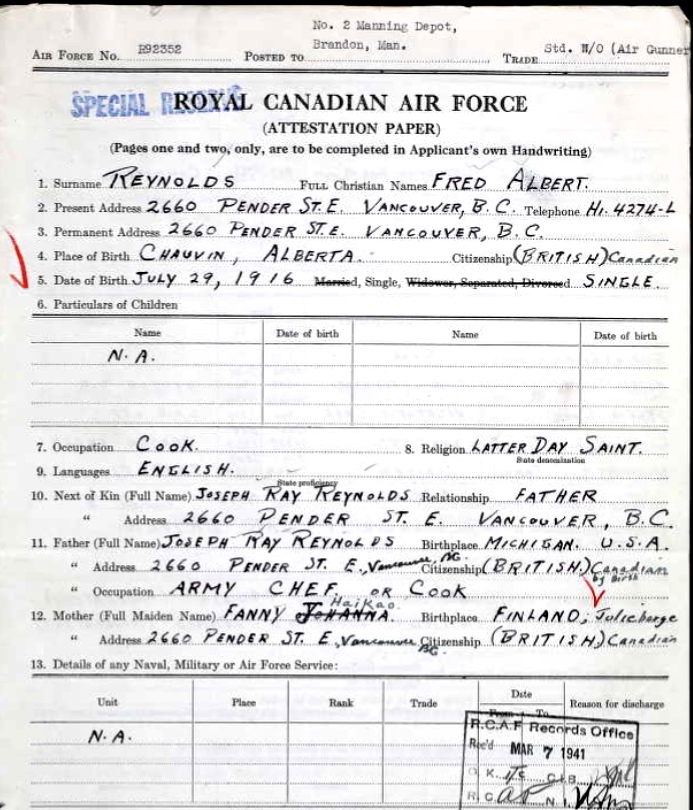 No. 2 Manning Depot,
AIR FORCE NO. R92352 POSTED TO Brandon, Man. TRADE Std. W/O (Air Gunner
SPECIAL RESERVE
ROYAL CANADIAN AIR FORCE
(ATTESTATION PAPER)
(Pages one and two, only, are to be completed in Applicant's own Handwriting)
1. Surname REYNOLDS FULL Christian Names FRED ALBERT.
2. Present Address 2660 PENDER ST. E. VANCOUVER, B.C. Telephone HI. 4274-L
3. Permanent Address 2660 PENDER ST. E. VANCOUVER, B.C.
4. Place of Birth CHAUVIN, ALBERTA. Citizenship (BRITISH) Canadian
5. Date of Birth JULY 29, 1916 Married, Single, Widower, Separated, Divorced. SINGLE.
6. Particulars of Children
Name Date of birth Name Date of birth
N.A.
7. Occupation COOK. 8. Religion LATTER DAY SAINT.
State denomination
9. Languages ENGLISH.
State proficiency
10. Next of Kin (Full Name) JOSEPH RAY REYNOLDS Relationship FATHER
" Address 2660 PENDER ST. E. VANCOUVER, B.C.
11. Father (Full Name) JOSEPH RAY REYNOLDS Birthplace MICHIGAN. U.S.A.
" Address 2660 PENDER ST. E., Vancouver BC. Citizenship (BRITISH) Canadian
by Birth
" Occupation ARMY CHEF OR COOK
Haikao
12. Mother (Full Maiden Name) FANNY JOHANNA. Birthplace FINLAND,
" Address 2660 PENDER ST. E, Vancouver BC. Citizenship (BRITISH) Canadian
13. Details of any Naval, Military or Air Force Service:
Unit Place Rank Trade Date From To Reason for discharge
N.A.
R.C.A.F. Records Office
Rec'd MAR 7 1941
O.K. C.I.B.
R.C. N.